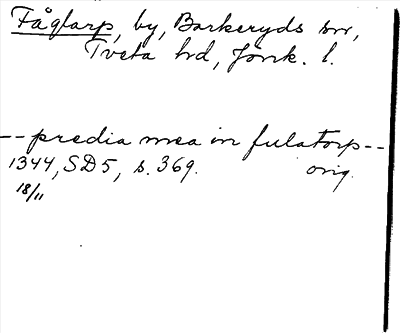 Fåglarp, by, Barkeryds sn,
Tveta hd, Jönk. l.
-- predia mea in fulatorp --
1344, SD5, s. 369. orig.
18/11